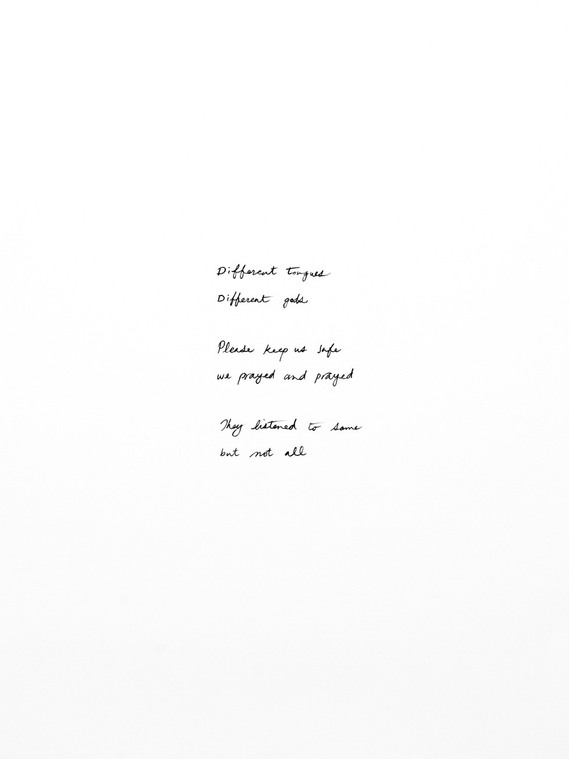 Different tongues
Different gods
Please keep us safe
we prayed and prayed
They listened to some
but not all